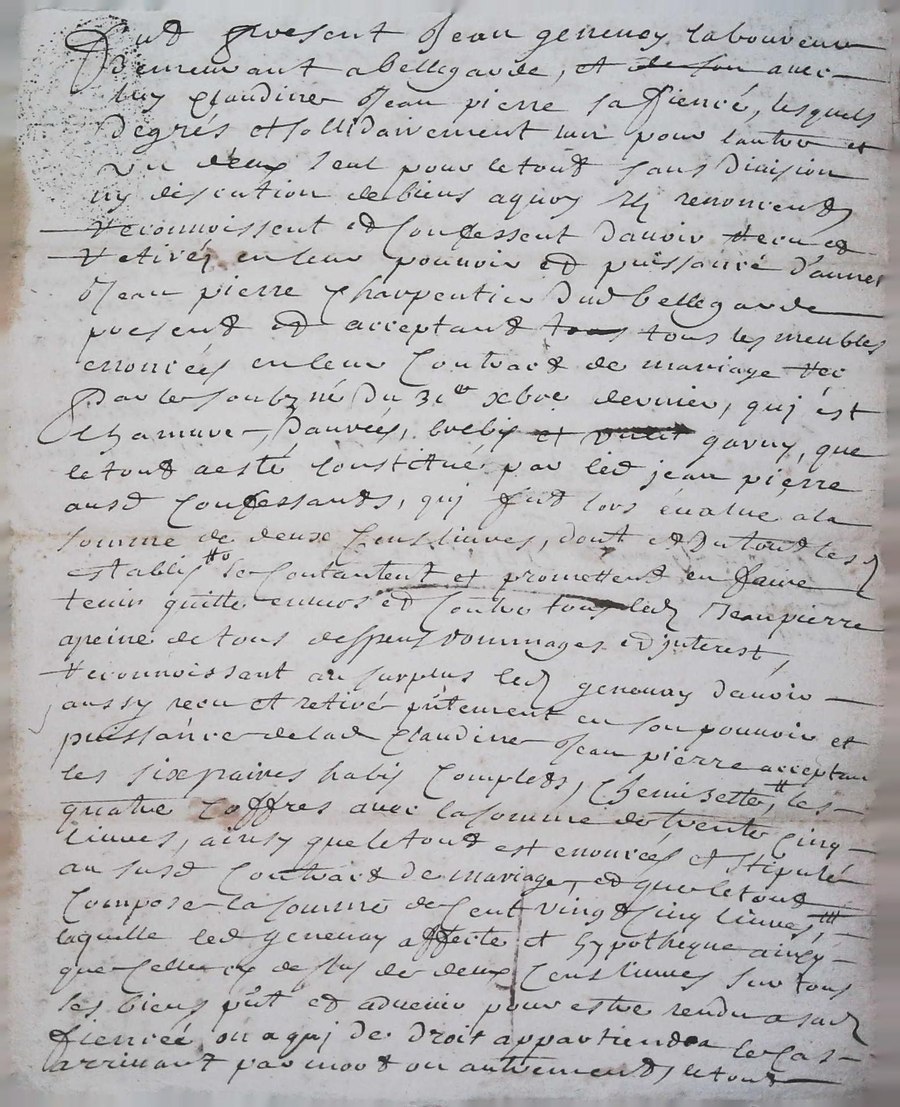 Fut present Jean genenoy laboureur
Demeurant a bellegarde, et de son avec
luy Claudine Jean pierre sa fiencé, lesquels
Degrés et sollidairement lun pour lautre et
un deux seul pour le tout sans Division
ny discution de biens a quoy ilz renoncent
Reconnoissent et Confessent davoir Receu et
Retirés en leur pouvoir et puissance d'
Jean pierre Charpentier Dud bellegarde
present et acceptant tous tous les meubles
enoncées en leur Contract de mariage Rec
Par le soubzné Du 31e xbre dernier, quj est
Charrue, brebis et garny, que
le tout a esté Constitué par led jean pierre
ausd Confessants, quj fut lors évalué a la
somme de deux Cens livres, dont et Du tout les
establis se Contantent et promettent en faire
tenir quitte envers et Contre tous led Jean pierre
a peine de tous despens Dommages et d'interest,
Reconnoissant au surplus led genenoy davoir
aussy receu et retiré pñtement en son pouvoir et
puissance de lad Claudine Jean pierre acceptan
les six paires habis Complets, Chemisette, les
quatre Coffres avec la somme de trente Cinq
livres, ainsy que le tout est enoncées et stipulé
au susd Contract de mariage, et que le tout
Compose la somme de Cent vingt Cinq livres,
laquelle led genenoy affecte et hypotheque ainsy
que Celle cy dessus de deux Cens livres sur tous
les biens pñt et advenir pour estre rendu a sad
fiencée, ou a quj de Droit appartiendra le Cas
arrivant par mort ou autrement, le tout